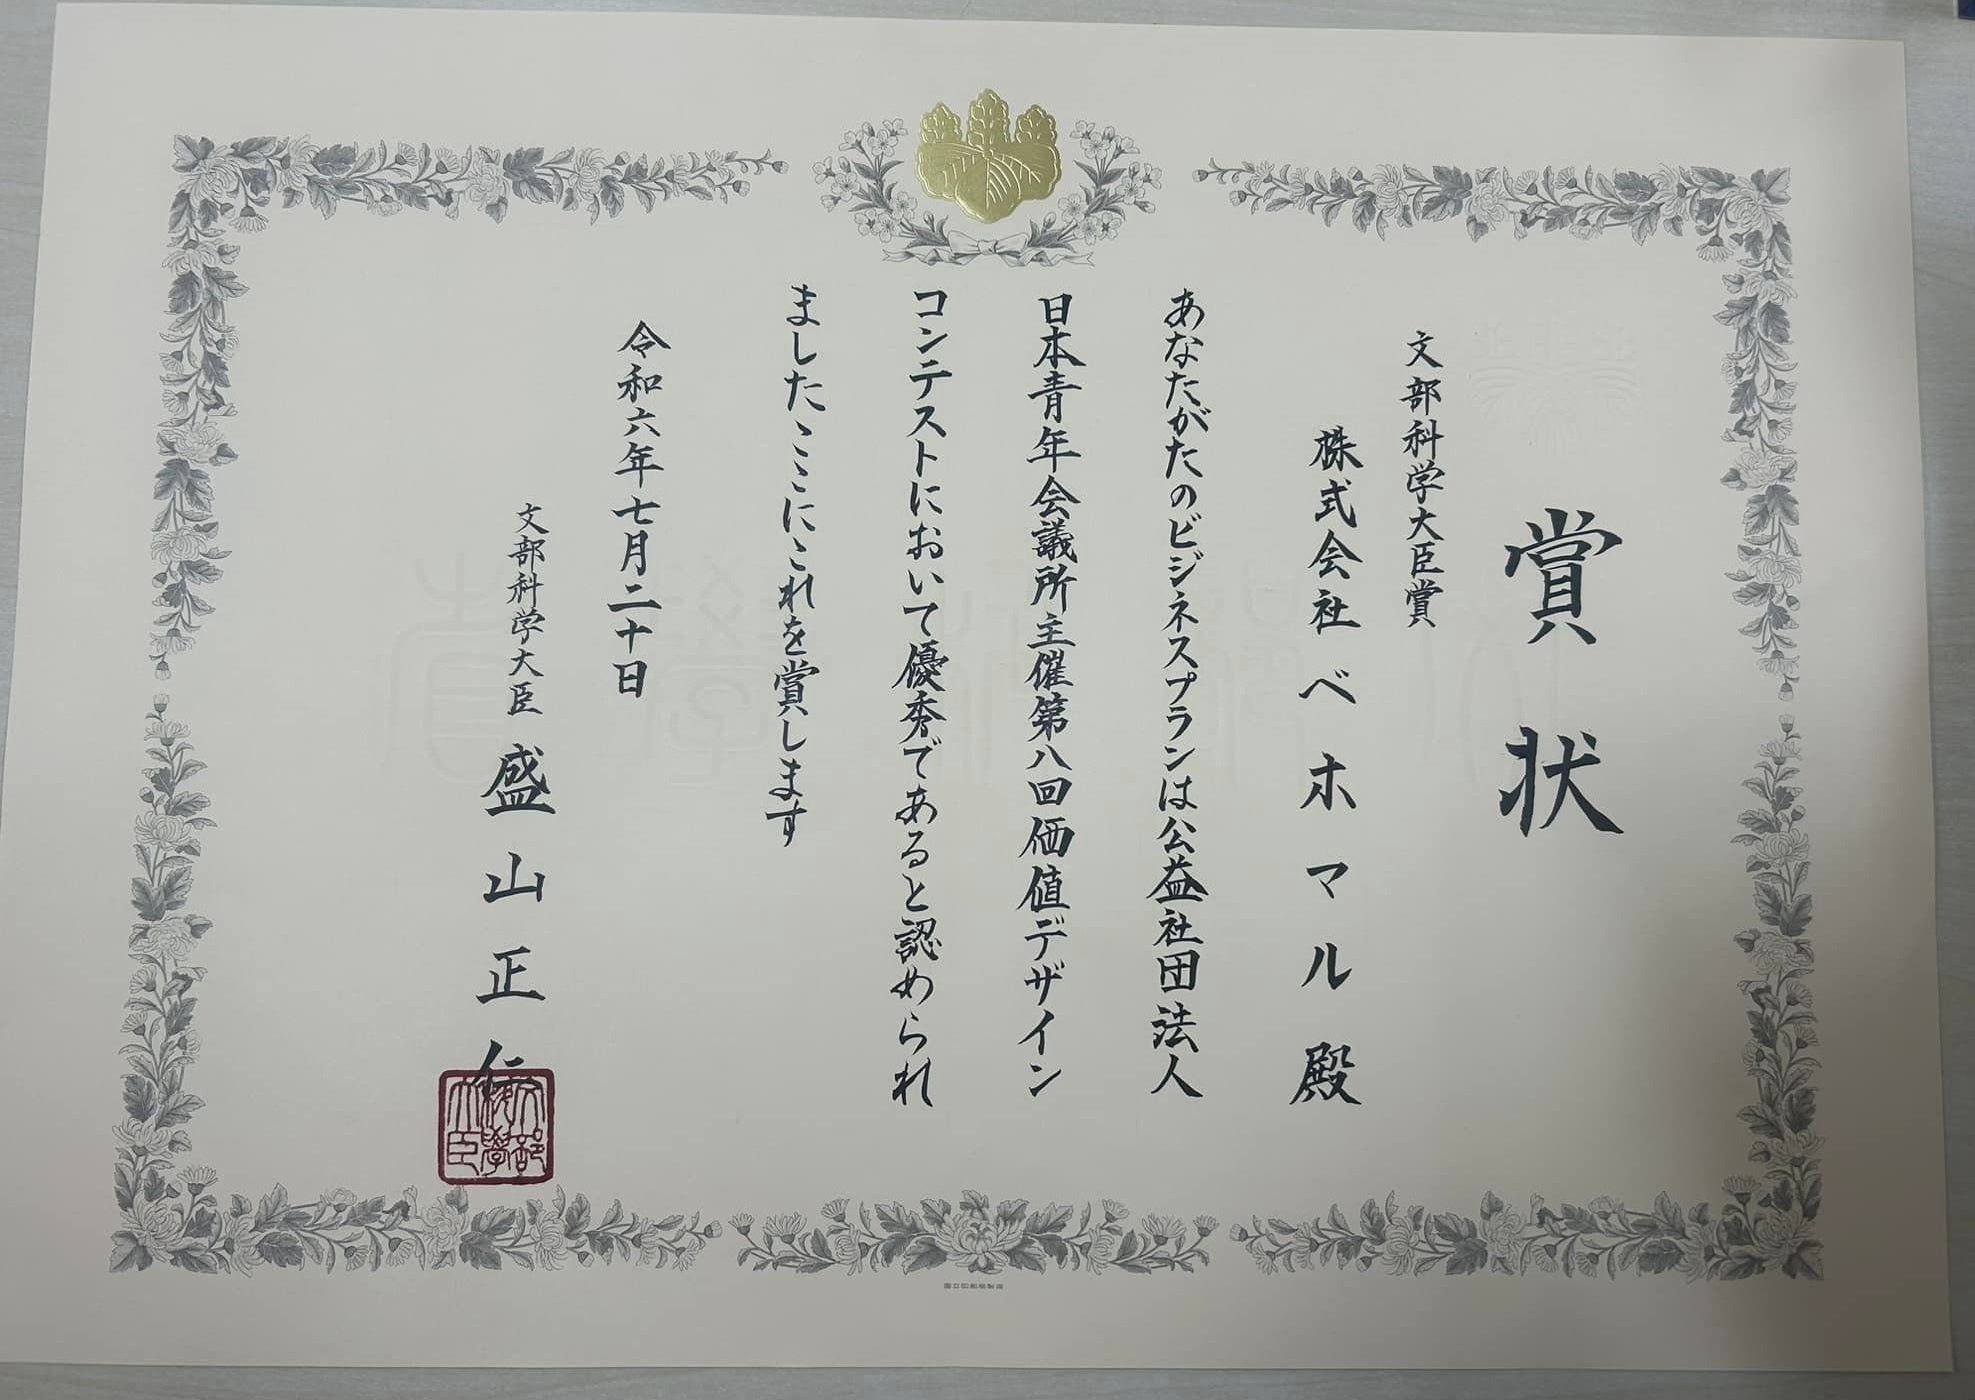 賞状
文部科学大臣賞
株式会社ベホマル殿
あなたがたのビジネスプランは公益社団法人
日本青年会議所主催第八回価値デザイン
コンテストにおいて優秀であると認められ
ましたここにこれを賞します
令和六年七月二十日
文部科学大臣 盛山正仁